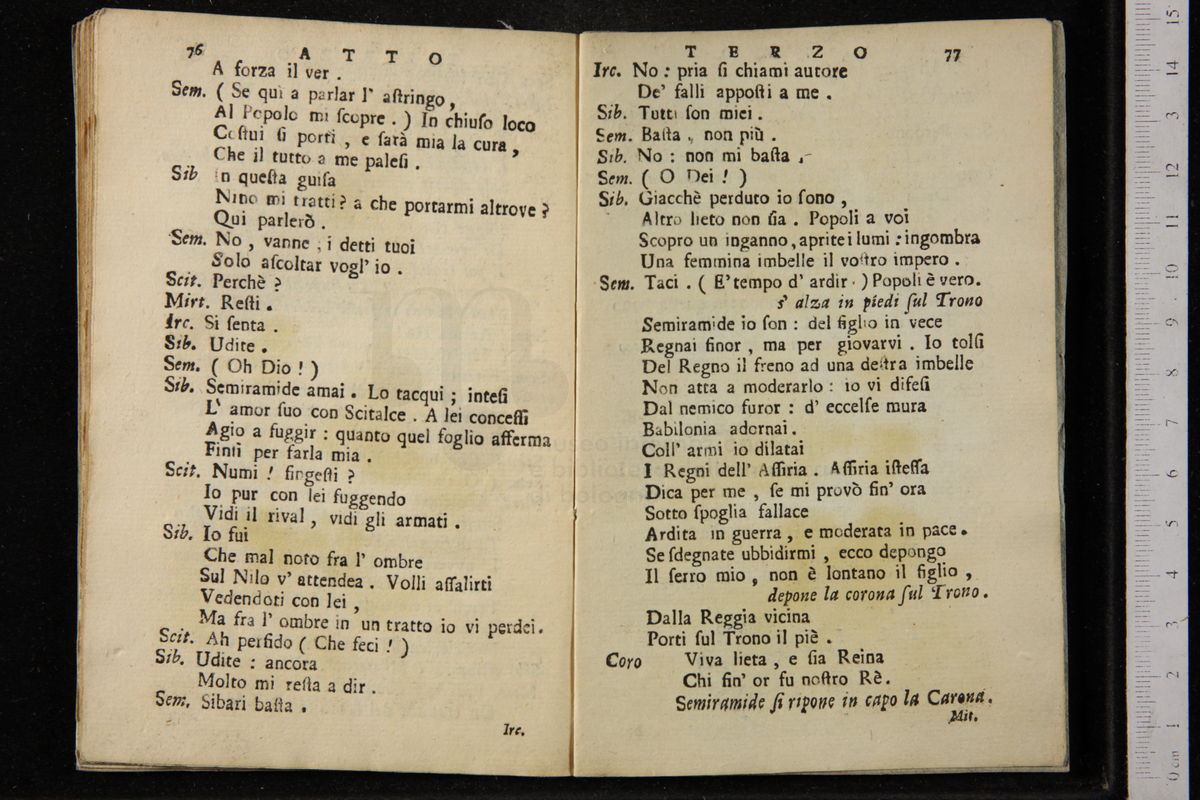 76 ATTO
A forza il ver .
Sem. ( Se qui a parlar l' aſtringo ,
Al Popolo mi ſcopre . ) In chiuſo loco
Coſtui ſi porti , e ſarà mia la cura ,
Che il tutto a me paleſi .
Sib in queſta guiſa
Nino mi tratti ? a che portarmi altrove ?
Qui parlerò .
Sem. No , vanne , i detti tuoi
Solo aſcoltar vogl' io .
Scit. Perchè ?
Mirt. Reſti .
Irc. Si ſenta .
Sib. Udite .
Sem. ( Oh Dio ! )
Sib. Semiramide amai . Lo tacqui ; inteſi
L' amor ſuo con Scitalce . A lei conceſſi
Agio a fuggir : quanto quel foglio afferma
Finſi per farla mia .
Scit. Numi ! fingeſti ?
Io pur con lei fuggendo
Vidi il rival , vidi gli armati .
Sib. Io fui
Che mal noto fra l' ombre
Sul Nilo v' attendea . Volli aſſalirti
Vedendoti con lei ,
Ma fra l' ombre in un tratto io vi perdei .
Scit. Ah perfido ( Che feci ! )
Sib. Udite : ancora
Molto mi reſta a dir .
Sem. Sibari baſta .
Irc.
TERZO 77
Irc. No : pria ſi chiami autore
De' falli appoſti a me .
Sib. Tutti ſon miei .
Sem. Baſta , non più .
Sib. No : non mi baſta .
Sem. ( O Dei ! )
Sib. Giacchè perduto io ſono ,
Altro lieto non ſia . Popoli a voi
Scopro un inganno , aprite i lumi : ingombra
Una femmina imbelle il voſtro impero .
Sem. Taci . ( E' tempo d' ardir . ) Popoli è vero .
s' alza in piedi ſul Trono
Semiramide io ſon : del figlio in vece
Regnai finor , ma per giovarvi . Io tolſi
Del Regno il freno ad una deſtra imbelle
Non atta a moderarlo : io vi difeſi
Dal nemico furor : d' eccelſe mura
Babilonia adornai .
Coll' armi io dilatai
I Regni dell' Aſſiria . Aſſiria iſteſſa
Dica per me , ſe mi provò fin' ora
Sotto ſpoglia fallace
Ardita in guerra , e moderata in pace .
Se ſdegnate ubbidirmi , ecco depongo
Il ſerro mio , non è lontano il figlio ,
depone la corona ſul Trono .
Dalla Reggia vicina
Porti ſul Trono il piè .
Coro Viva lieta , e ſia Reina
Chi fin' or fu noſtro Rè .
Semiramide ſi ripone in capo la Carona .
Mir.